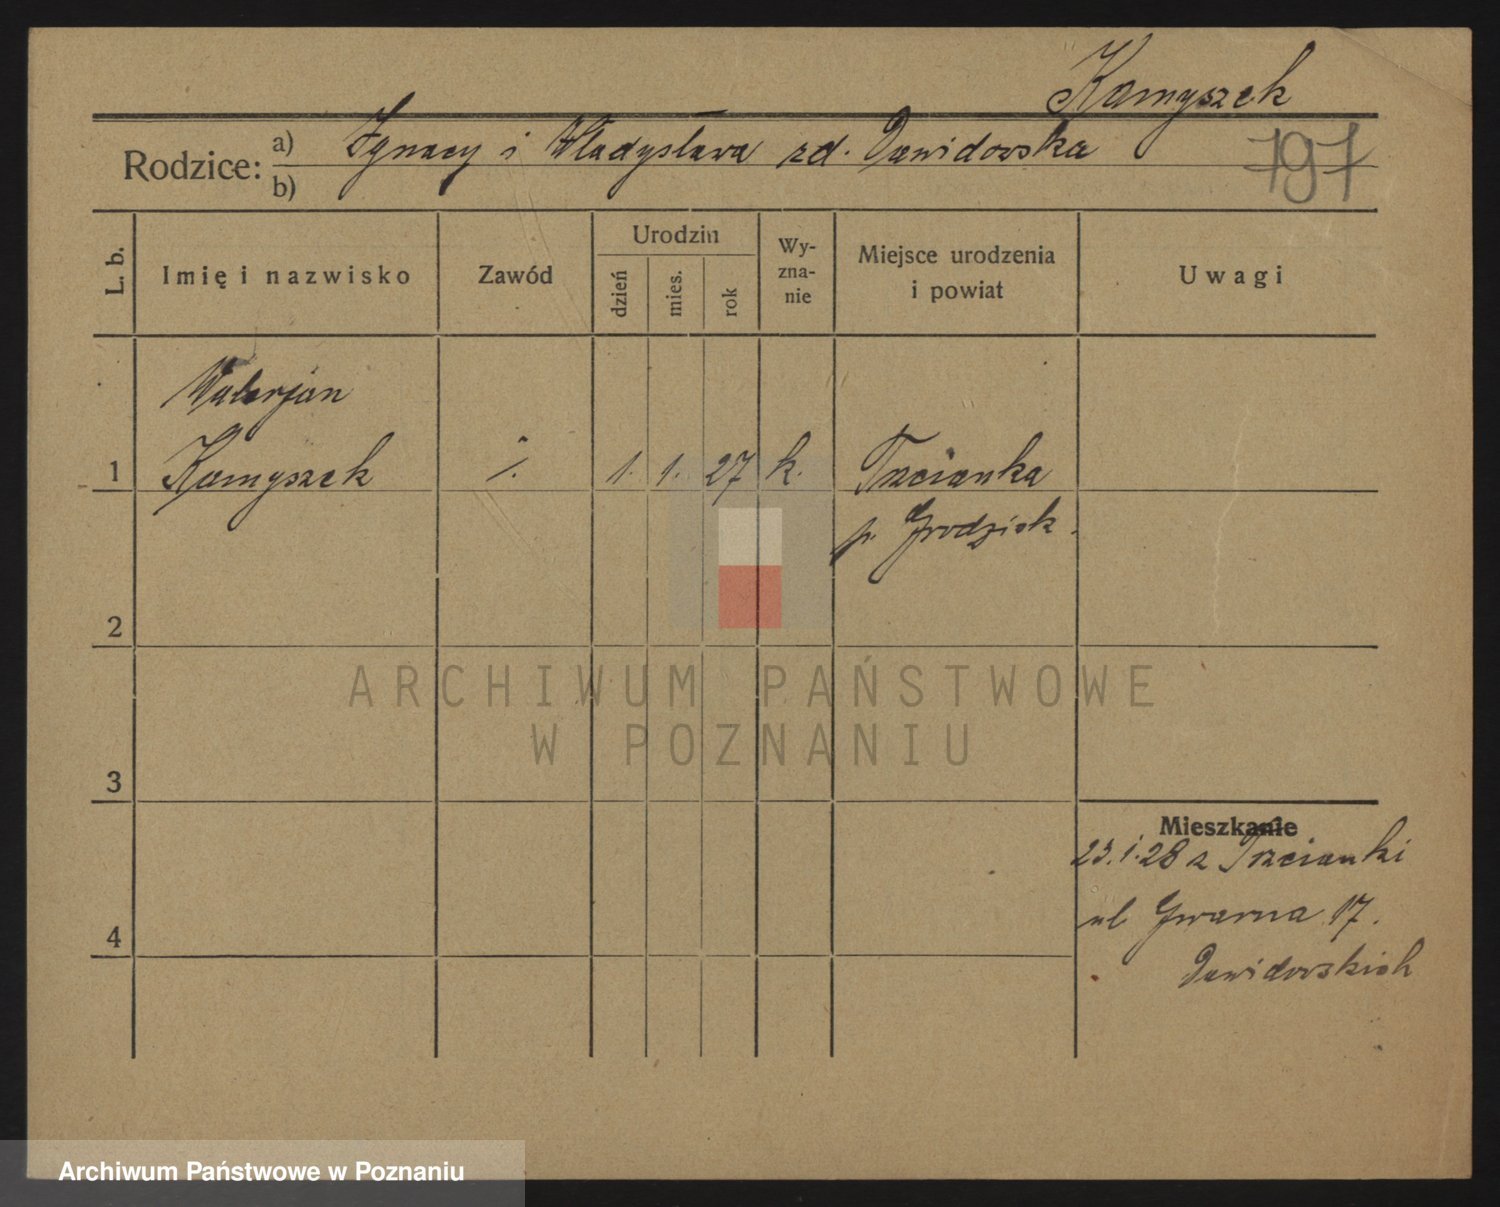 Kamyszek
Rodzice: a) Ignacy i Władysława zd. Dawidowska
b)
797
L. b.
Imię i nazwisko
Zawód
Urodzin
dzień
mies.
rok
Wy-
zna-
nie
Miejsce urodzenia
i powiat
Uwagi
Walerjan
1 Kamyszek ./. 1. 1. 27 k. Trzcianka
p. Grodzisk.
2
ARCHIWUM PAŃSTWOWE
W POZNANIU
3
Mieszkanie
23.1.28 z Trzcianki
4 ul Gwarna 17.
Dawidowskich
Archiwum Państwowe w Poznaniu